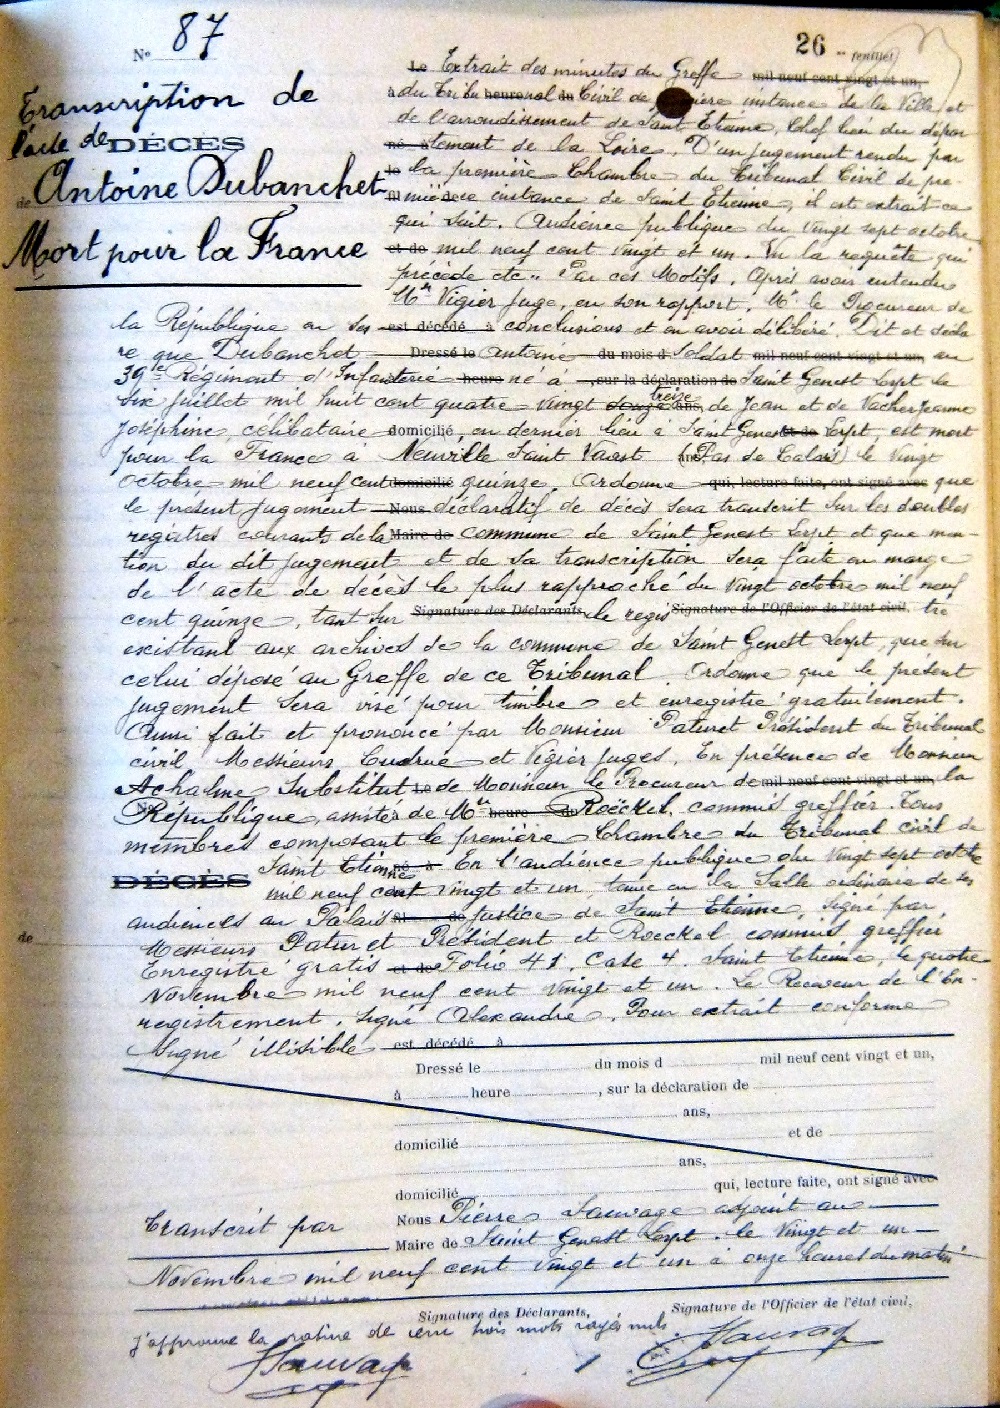 N° 87
26
Transcription de
l'acte de DÉCÈS
de Antoine Dubanchet
Mort pour la France
Le Extrait des minutes du Greffe mil neuf cent vingt et un,
à du Tribu heure nal du Civil de première instance de la Ville et
de l'arrondissement de Saint Etienne, Chef lieu du dépar
né à tement de la Loire. D'un jugement rendu par
la première Chambre du Tribunal Civil de pre-
mière instance de Saint Etienne, il est extrait ce
qui suit. Audience publique du vingt sept octobre
et de mil neuf cent vingt et un. Vu la requête qui
précède etc.. Par ces Motifs. Après avoir entendu
Mr Vigier Juge, en son rapport, Mr le Procureur de
la République en ses est décédé à conclusions et en avoir délibéré. Dit et décla
re que Dubanchet Dressé le Antoine du mois d Soldat mil neuf cent vingt et un, au
39e Régiment d'Infanterie heure né à , sur la déclaration de Saint Genest Lerpt le
six juillet mil huit cent quatre-vingt douze treize ans, de Jean et de Vacher Jeanne
Joséphine, célibataire domicilié, en dernier lieu à Saint Genest et de Lerpt, est mort
pour la France à Neuville Saint Vaast (Pas de Calais) le vingt
octobre mil neuf cent domicilié quinze. Ordonne qui, lecture faite, ont signé avec que
le présent jugement Nous déclaratif de décès sera transcrit sur les doubles
registres courants de la Maire de commune de Saint Genest Lerpt et que men-
tion du dit jugement et de sa transcription sera faite en marge
de l'acte de décès le plus rapproché du vingt octobre mil neuf
cent quinze, tant sur Signature des Déclarants, le regis Signature de l'Officier de l'état civil, tre
existant aux archives de la commune de Saint Genest Lerpt, que sur
celui déposé au Greffe de ce Tribunal. Ordonne que le présent
jugement sera visé pour timbre et enregistré gratuitement.
Ainsi fait et prononcé par Monsieur Paturet Président du Tribunal
civil Messieurs et Vigier Juges. En présence de Monsieur
Achalme Substitut Le de Monsieur le Procureur de mil neuf cent vingt et un, la
République, assistés de Me heure de Roëckel, commis greffier. Tous
membres composant la première Chambre du Tribunal civil de
DÉCÈS Saint Etienne né à En l'audience publique du vingt sept octobre
mil neuf cent vingt et un tenue en la Salle ordinaire de ses
audiences au Palais de justice de Saint Etienne, signé par,
de Messieurs Paturet Président et Roeckel commis greffier
Enregistré gratis et de Folio 41. Case 4. Saint Etienne, le quatre
Novembre mil neuf cent vingt et un. Le Receveur de l'En-
registrement. Signé Alexandre. Pour extrait conforme
Signé illisible est décédé à
Dressé le du mois d mil neuf cent vingt et un,
à heure , sur la déclaration de
ans,
domicilié et de
ans,
domicilié qui, lecture faite, ont signé avec
Transcrit par Nous Pierre Sauvage adjoint au
Maire de Saint Genest Lerpt. le Vingt et un
Novembre mil neuf cent vingt et un à onze heures du matin
Signature des Déclarants, Signature de l'Officier de l'état civil,
J'approuve la rature de trois mots rayés nuls.
Sauvage
Sauvage